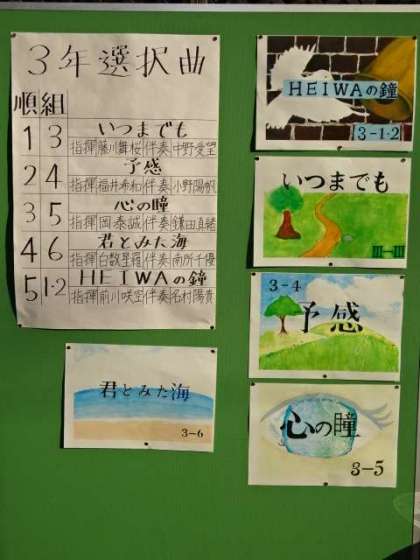 3年選択曲
順組
1 3 いつまでも
指揮 藤川舞桜 伴奏 中野愛望
2 4 予感
指揮 福井希和 伴奏 小野陽帆
3 5 心の瞳
指揮 岡泰誠 伴奏 鎌田真緒
4 6 君とみた海
指揮 白数星羅 伴奏 南所千優
5 1·2 HEIWAの鐘
指揮 前川咲空 伴奏 名村陽貴
HEIWAの鐘
3-1·2
いつまでも
III-III
3-4
予感
心の瞳
3-5
君とみた海
3-6